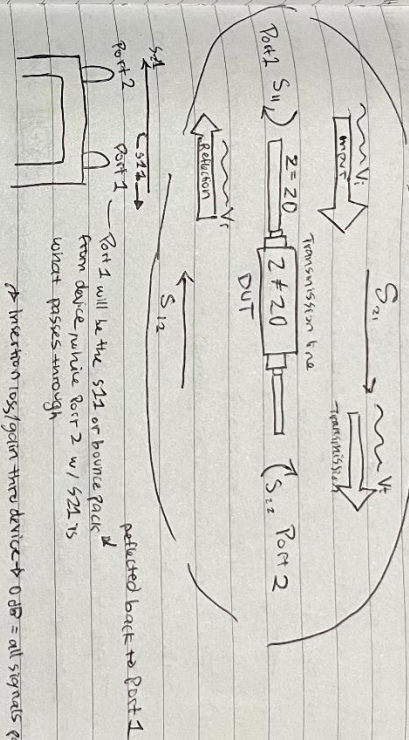 S21
Vi
Vt
Input
Transmission
Transmission line
Port 1 S11
Z = Z0
Z ≠ Z0
S22 Port 2
DUT
Vr
Reflection
S12
S21
S11
Port 2
Port 1
Port 1 will be the S11 or bounce back
reflected back to Port 1
from device, while Port 2 w/ S21 is
what passes through
→ Insertion loss/gain thro device → 0 dB = all signals